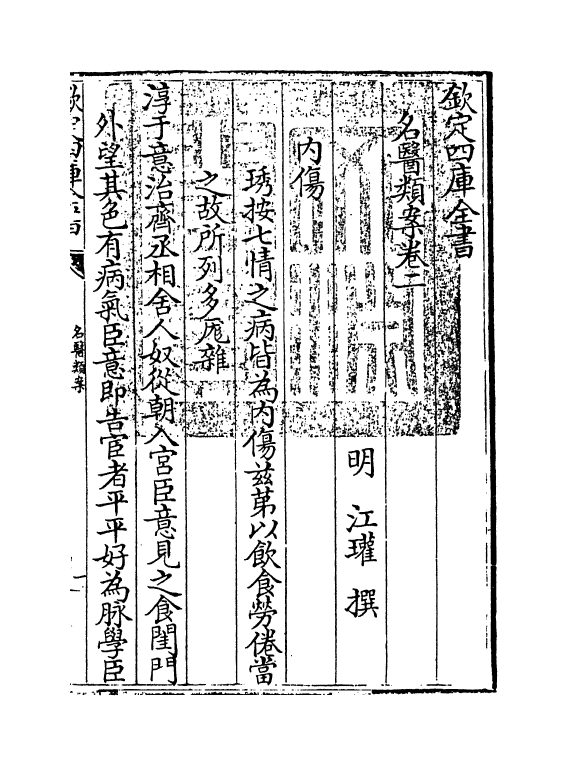 欽定四庫全書
名醫類案卷二
明 江瓘 撰
内傷
琇按七情之病皆為内傷兹苐以飲食勞倦當
之故所列多厖雜
淳于意治齊丞相舍人奴從朝入宫臣意見之食閨門
外望其色有病氣臣意即告宦者平平好為脉學臣
欽定四庫全書
名醫類案